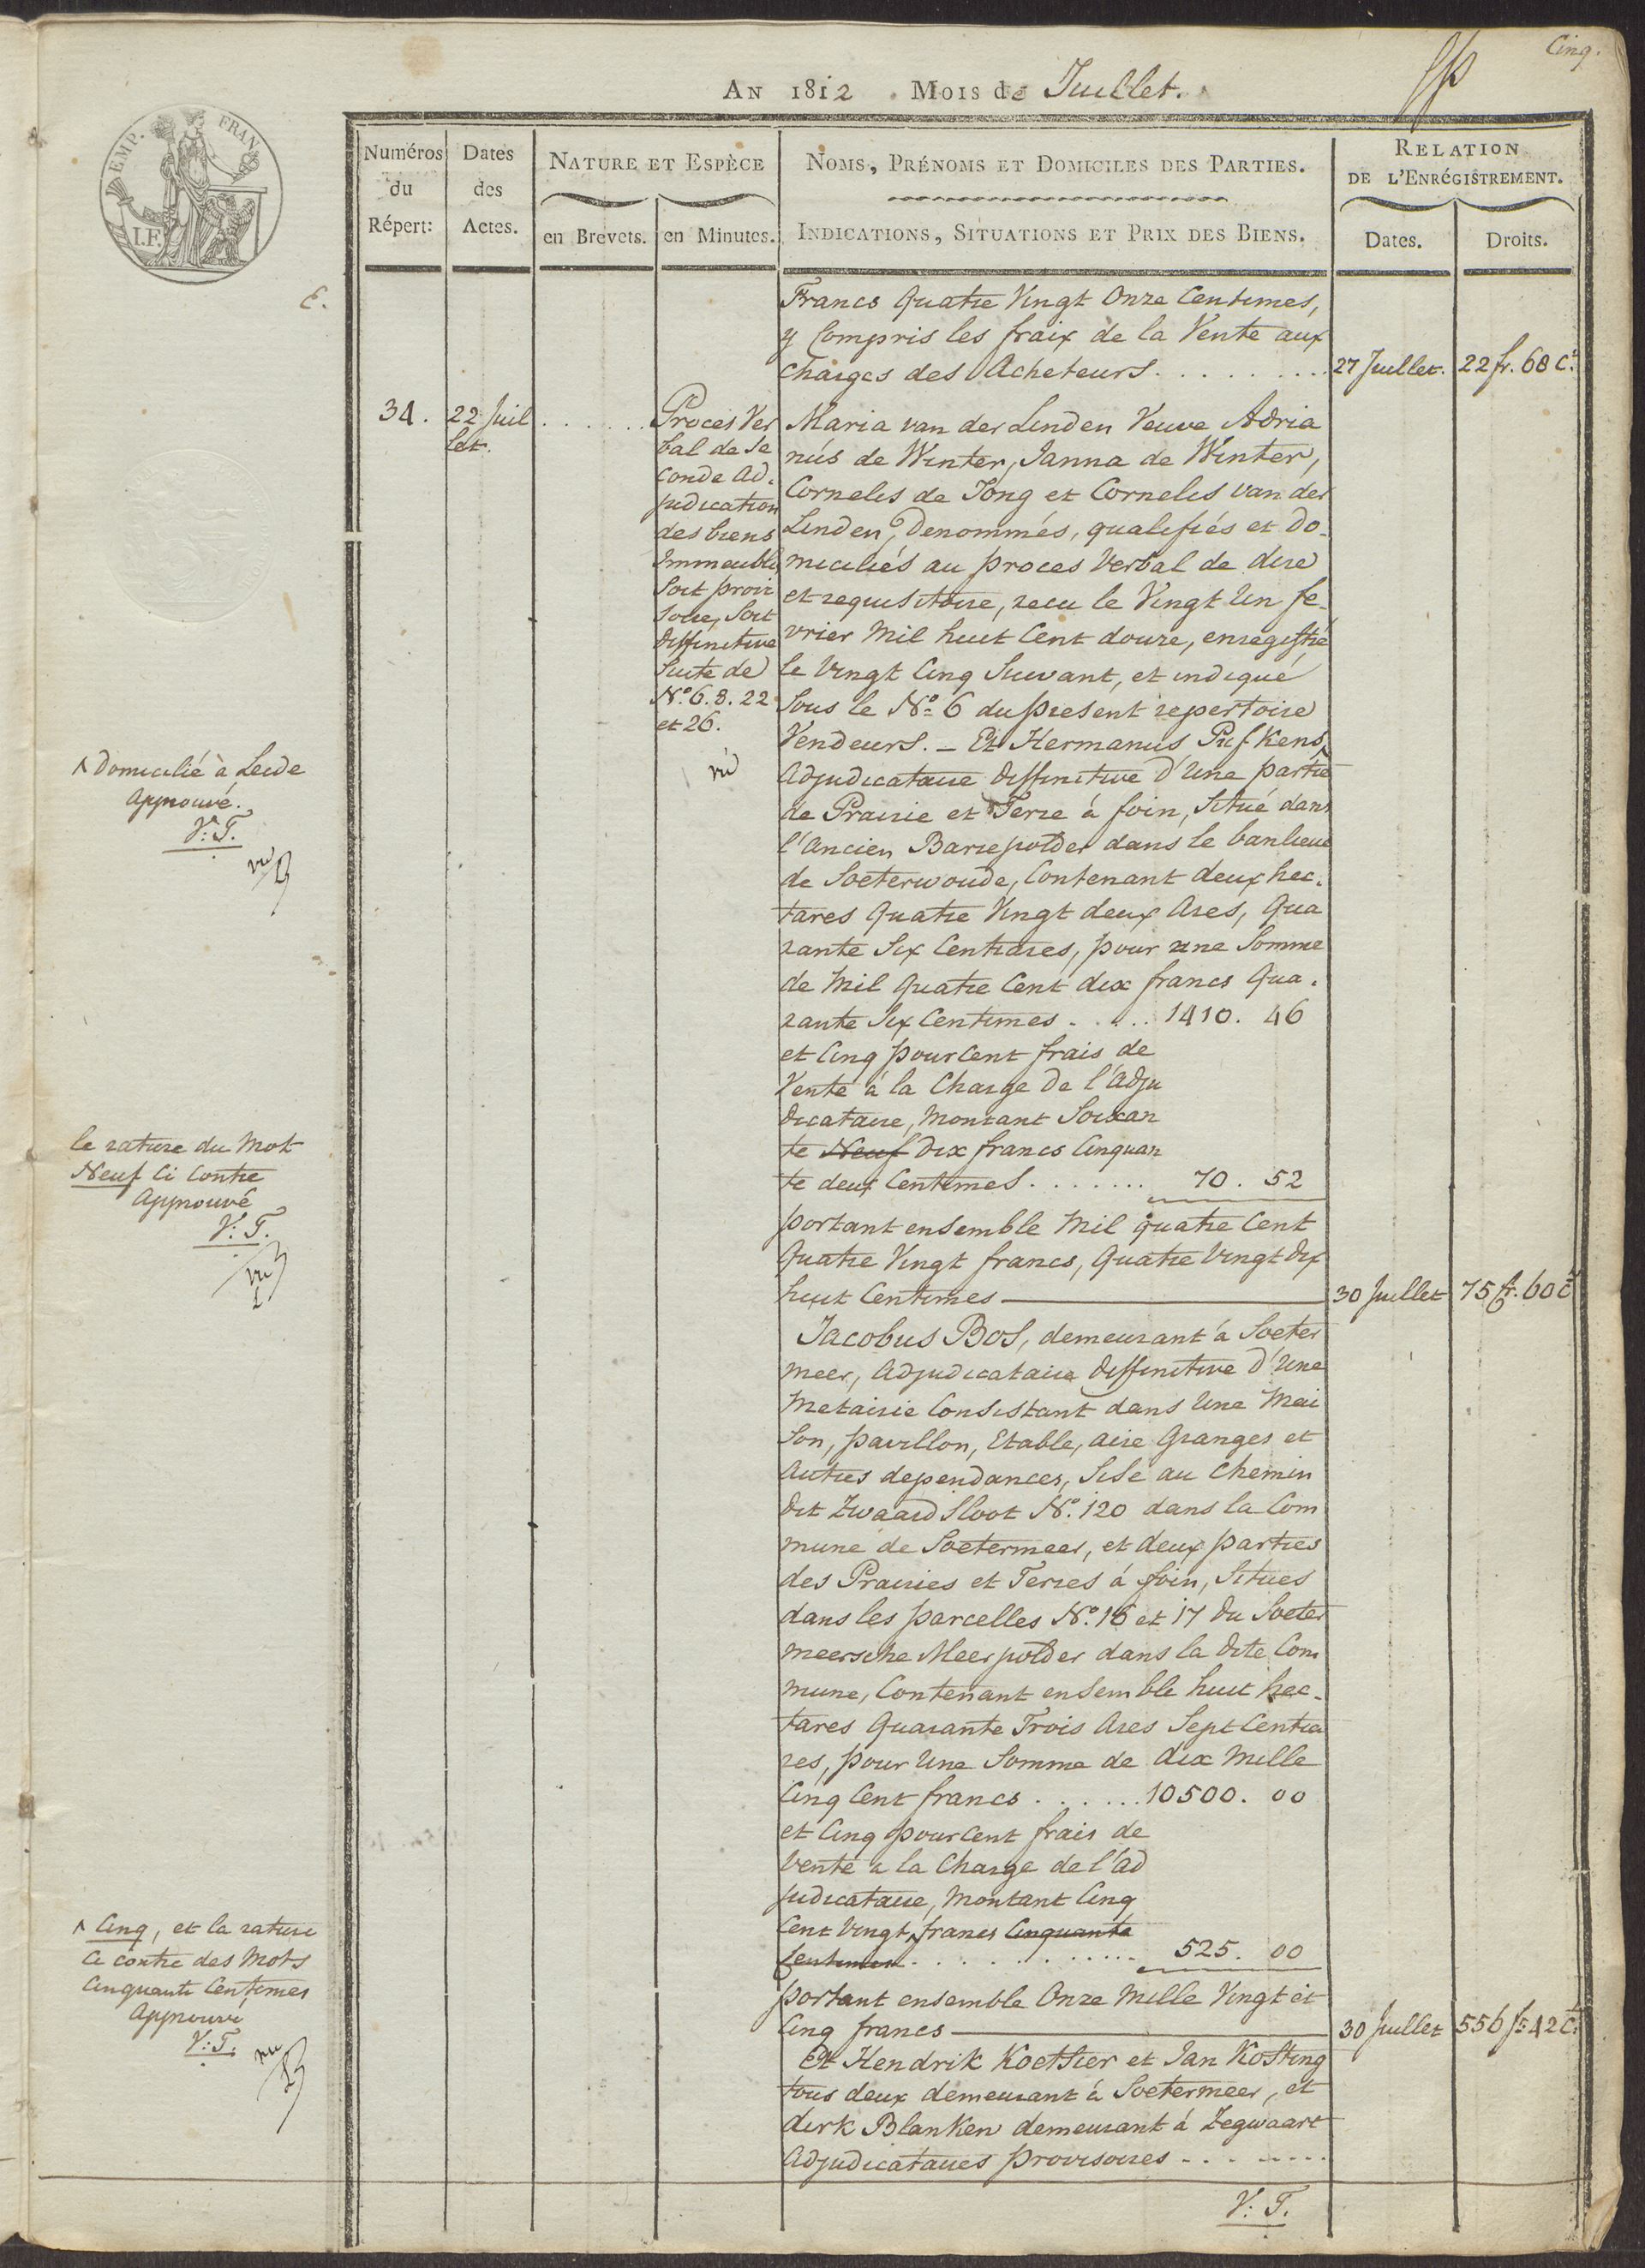 Cinq.
AN 1812 . MOIS de Juillet.
EMP. FRAN
I.F.
Numéros du Répert:
Dates des Actes.
NATURE ET ESPÈCE
en Brevets. en Minutes.
NOMS, PRÉNOMS ET DOMICILES DES PARTIES.
INDICATIONS, SITUATIONS ET PRIX DES BIENS.
RELATION
DE L'ENRÉGISTREMENT.
Dates. Droits.
Francs Quatre Vingt Onze Centimes,
y Compris les fraix de la Vente aux
Charges des Acheteurs . . . . . . . . 27 Juillet. 22 fr. 68 Cs.
34. 22 Juil
let.
Procès Ver
bal de Se
conde Ad.
judication
des biens
Immeubles
Soit provi
soire, Soit
diffinitive
Suite de
No. 6. 8. 22
et 26.
vu
Maria van der Linden Veuve Adria
nus de Winter, Janna de Winter,
Cornelis de Jong et Cornelis van der
Linden, Denommés, qualifiés et do-
miciliés au proces Verbal de dire
et requisitoire, recu le Vingt Un fe-
vrier Mil huit Cent douze, enregistré
le Vingt Cinq Suivant, et indiqué
Sous le No. 6 du present repertoire
Vendeurs. - Et Hermanus Pufkens ^
Adjudicataire diffinitive d'Une partie
de Prairie et Terre à foin, Situé dans
l'ancien Barrepolder dans le banlieue
de Soeterwoude, Contenant deux hec-
tares Quatre Vingt deux Ares, Qua
rante Six Centiares, pour une Somme
de Mil Quatre Cent dix francs Qua-
rante Six Centimes . . . . . 1410. 46
et Cinq pour Cent frais de
Vente à la Charge de l'adju
dicataire, Montant Soixan
te Neuf dix francs Cinquan
te deux Centimes . . . . . . . 70. 52
portant ensemble Mil quatre Cent
Quatre Vingt francs, Quatre Vingt dix
huit Centimes — 30 Juillet 75 fr. 60 Cs
Jacobus Bos, demeurant à Soeter
meer, Adjudicataire diffinitive d'Une
Metairie Consistant dans Une Mai
Son, pavillon, Etable, aire Granges et
Autres dependances, Sise au Chemin
dit Zwaard Sloot No. 120 dans la Com
mune de Soetermeer, et deux parties
des Prairies et Terres à foin, Situes
dans les parcelles No. 16 et 17 du Soeter
meersche Meerpolder dans la dite Com
mune, Contenant ensemble huit hec-
tares Quarante Trois Ares Sept Centia
res, pour Une Somme de dix Mille
Cinq Cent francs . . . . . . 10500. 00
et Cinq pour Cent frais de
Vente a la Charge de l'ad
judicataire, Montant Cinq
Cent Vingt ^ francs Cinquante
Centimes . . . . . . . . . 525. 00
portant ensemble Onze Mille Vingt et
Cinq francs — 30 Juillet 556 fr. 42 Cs.
Et Hendrik Koetsier et Jan Kosting
tous deux demeurant à Soetermeer, et
dirk Blanken demeurant à Zegwaart
Adjudicataires provisoires . . . . . . .
V: T.
^ Domicilié à Leide
Approuvé.
V: T.
vu
le rature du Mot
Neuf Ci Contre
Approuvé
V: T.
vu
^ Cinq, et la rature
Ci contre des Mots
Cinquante Centimes
Approuvé
V: T.
vu